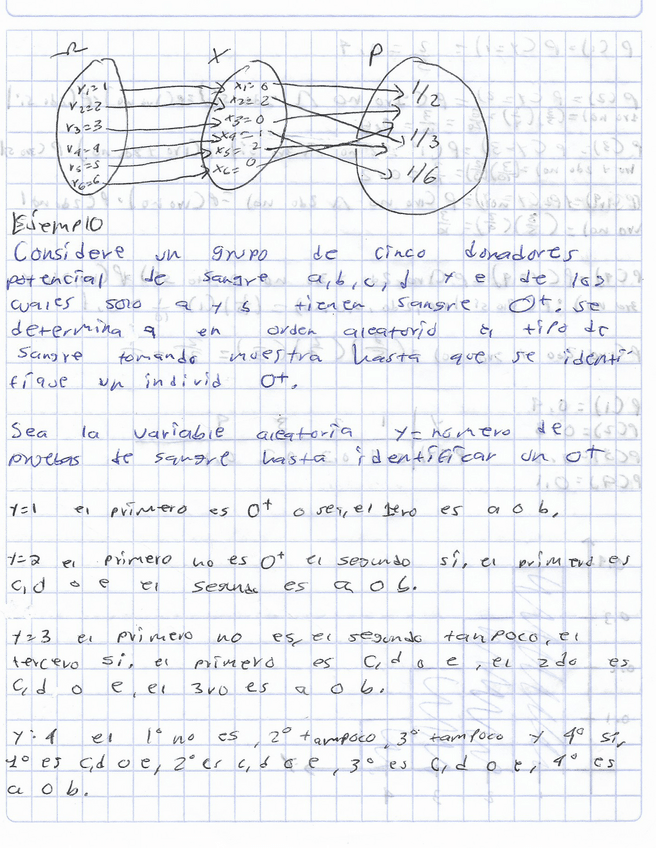 Ω X P
r1=1 x1=0 1/2
r2=2 x2=2
r3=3 x3=0 1/3
r4=4 x4=1
r5=5 x5=2 1/6
r6=6 x6=0
Ejemplo
Considere un grupo de cinco donadores
potencial de sangre a,b,c,d y e de los
cuales solo a y b tienen sangre O+. se
determina a en orden aleatorio el tipo de
sangre tomando muestra hasta que se identi-
fique un individ O+.
Sea la variable aleatoria y=número de
pruebas de sangre hasta identificar un O+
Y=1 el primero es O+ o sea, el 1ero es a o b.
Y=2 el primero no es O+ el segundo si, el primero es
c,d o e el segund es a o b.
Y=3 el primero no es, el segundo tanpoco, el
tercero si, el primero es c,d o e, el 2do es
c,d o e, el 3ro es a o b.
Y:4 el 1° no es, 2° tampoco, 3° tampoco y 4° si,
1° es c,d o e, 2° es c,d o e, 3° es c,d o e, 4° es
a o b.